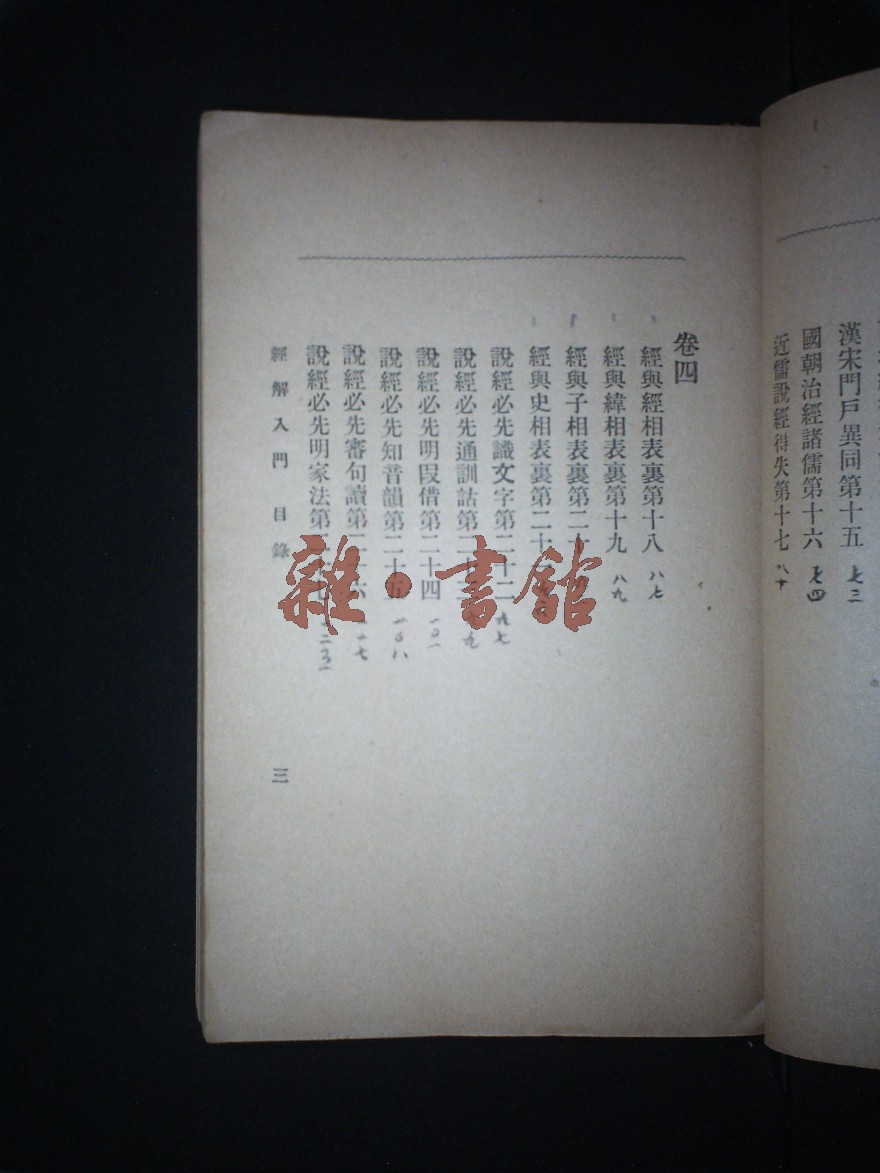 漢宋門戶異同第十五 七三
國朝治經諸儒第十六 七四
近儒說經得失第十七 八十
卷四
經與經相表裏第十八 八七
經與緯相表裏第十九 八九
經與子相表裏第二十
經與史相表裏第二十
說經必先識文字第二十二 九七
說經必先通訓詁第二十三 九九
說經必先明叚借第二十四 一〇一
說經必先知音韻第二十五 一〇八
說經必先審句讀第二十六 一一七
說經必先明家法第二十七
經解入門 目錄
三
雜·書館